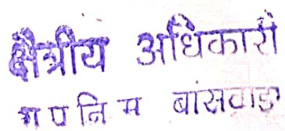 क्षैत्रीय अधिकारी
ग प नि म बांसवाडा